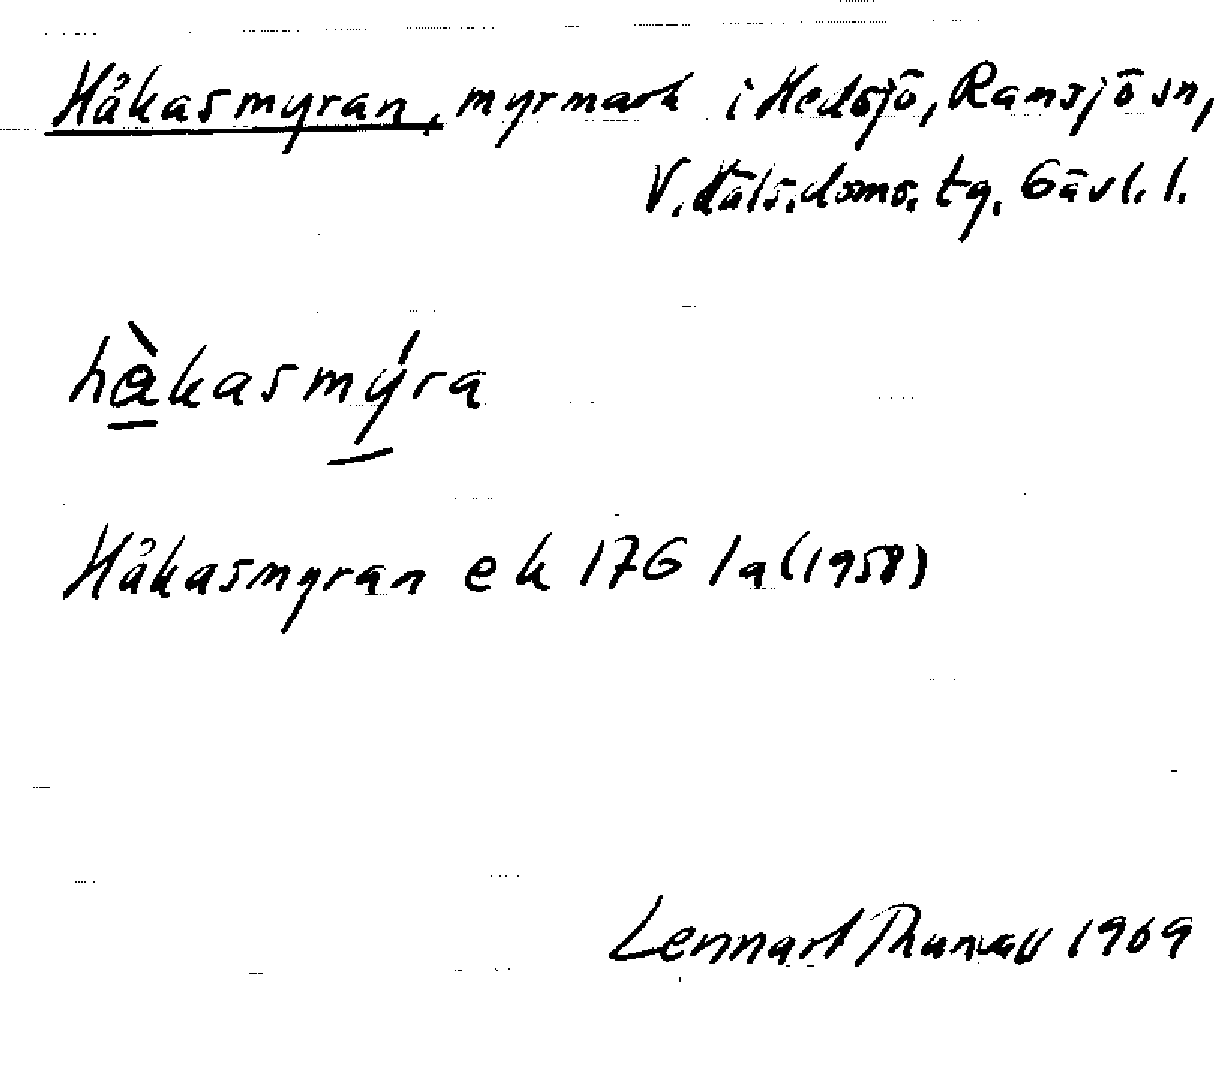 Håkasmyran, myrmark i Hedsjö, Ramsjö sn,
V. Häls. doms. tg. Gävl. l.
hå̀kasmýra
Håkasmyran ek 176 1a (1958)
Lennart 1969